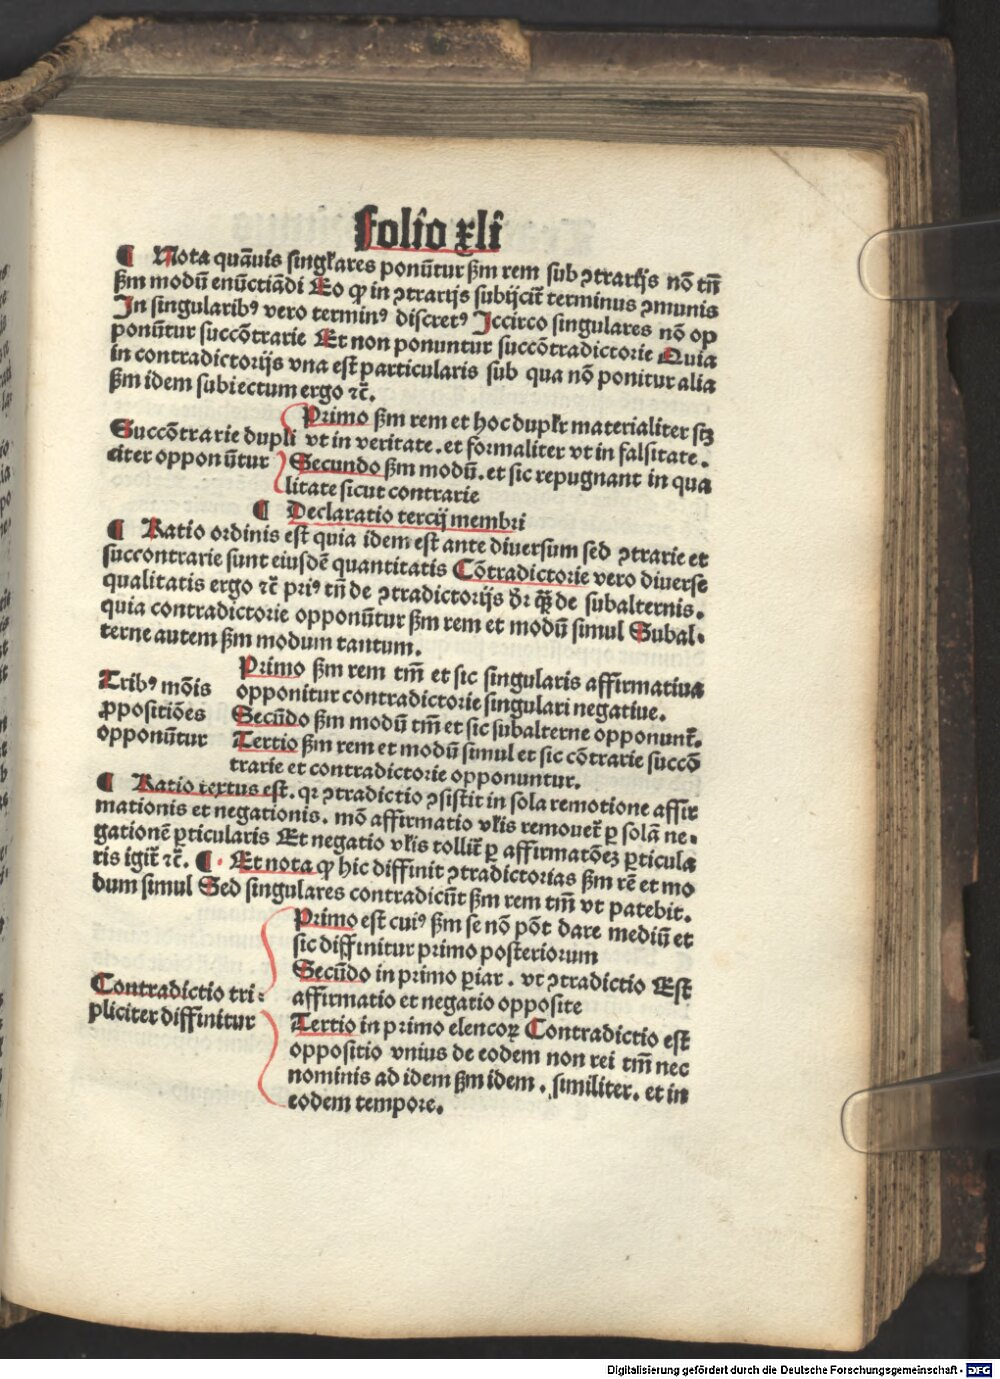 folio xli
¶ Nota quāuis singl'ares ponūtur ẜm rem sub ꝯtrarijs nō tn̄
ẜm modū enūctiādi Eo ꝙ in ꝯtrarijs subijcit̄ terminus ꝯmunis
In singularibꝰ vero terminꝰ discretꝰ Iccirco singulares nō op
ponūtur succōtrarie Et non ponuntur succōtradictorie Quia
in contradictorijs vna est particularis sub qua nō ponitur alia
ẜm idem subiectum ergo ⁊c̄.
Succōtrarie dupli
citer opponūtur
Primo ẜm rem et hoc dupl'r materialiter sꝫ
vt in veritate. et formaliter vt in falsitate.
Secundo ẜm modū. et sic repugnant in qua
litate sicut contrarie
¶ Declaratio tercij membri
¶ Ratio ordinis est quia idem est ante diuersum sed ꝯtrarie et
succontrarie sunt eiusdē quantitatis Cōtradictorie vero diuerse
qualitatis ergo ⁊c̄ priꝰ tn̄ de ꝯtradictorijs dr̄ qꝫ de subalternis.
quia contradictorie opponūtur ẜm rem et modū simul Subal-
terne autem ẜm modum tantum.
Tribꝰ mōis
ꝓpositiōes
opponūtur
Primo ẜm rem tm̄ et sic singularis affirmatiua
opponitur contradictorie singulari negatiue.
Secūdo ẜm modū tm̄ et sic subalterne opponunt̄.
Tertio ẜm rem et modū simul et sic cōtrarie succō
trarie et contradictorie opponuntur.
¶ Ratio textus est. qr ꝯtradictio ꝯsistit in sola remotione affir
mationis et negationis. mō affirmatio vl'is remouet̄ ꝑ solā ne-
gationē ꝑticularis Et negatio vl'is tollit̄ ꝑ affirmatōeꝫ ꝑticula
ris igit̄ ⁊c̄. ¶ Et nota ꝙ hic diffinit ꝯtradictorias ẜm rē et mo
dum simul Sed singulares contradicūt ẜm rem tm̄ vt patebit.
Contradictio tri-
pliciter diffinitur
Primo est cuiꝰ ẜm se nō pōt dare mediū et
sic diffinitur primo posteriorum
Secūdo in primo ꝑiar. vt ꝯtradictio Est
affirmatio et negatio opposite
Tertio in primo elencoꝝ Contradictio est
oppositio vnius de eodem non rei tm̄ nec
nominis ad idem ẜm idem. similiter. et in
eodem tempore.
Digitalisierung gefördert durch die Deutsche Forschungsgemeinschaft - DFG